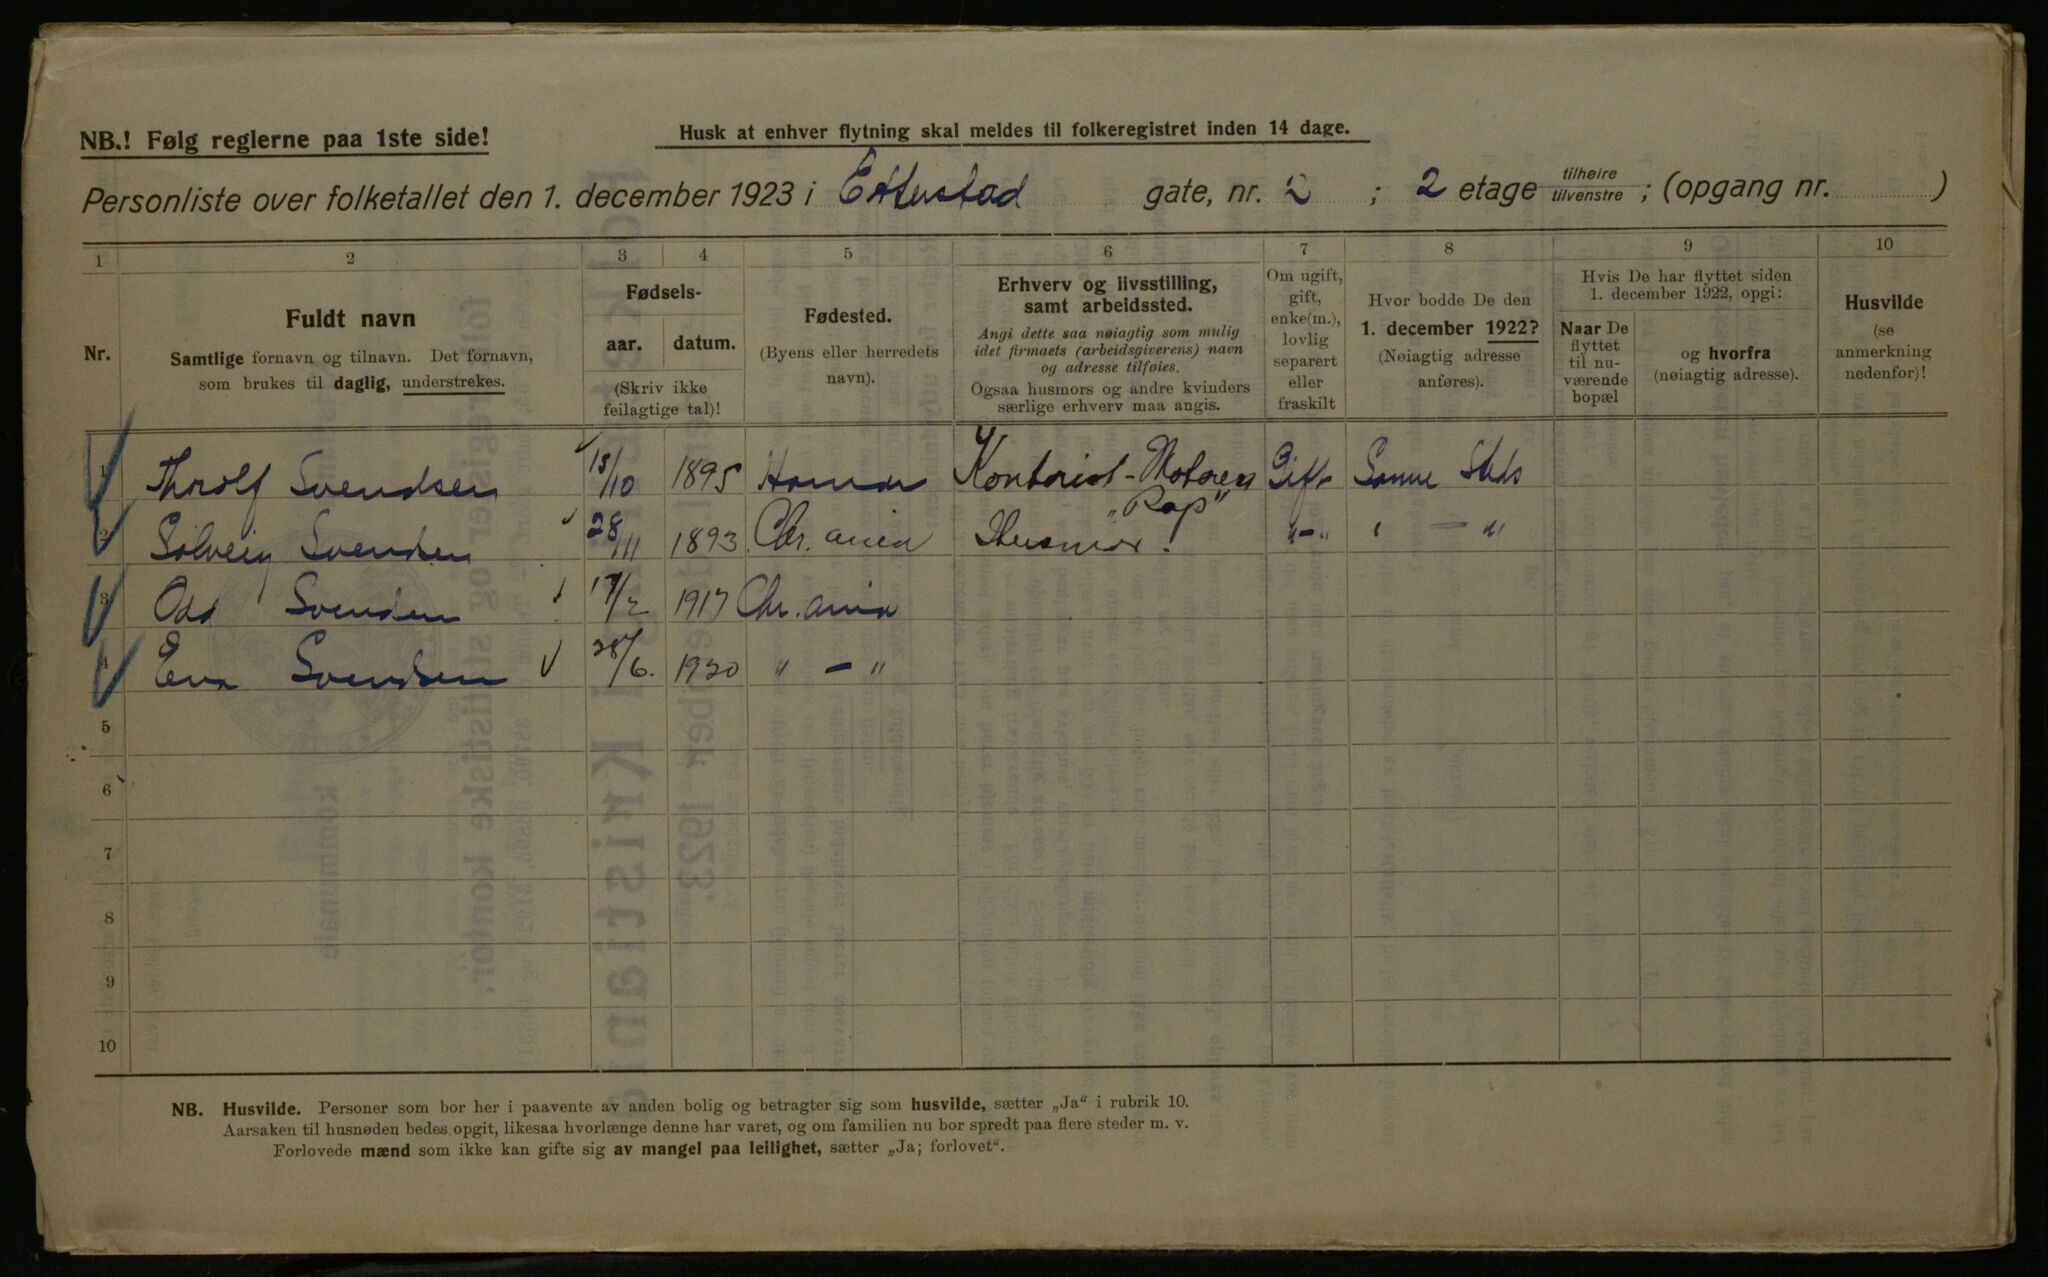 NB.! Følg reglerne paa 1ste side!
Husk at enhver flytning skal meldes til folkeregistret inden 14 dage.
Personliste over folketallet den 1. december 1923 i Etterstad gate, nr. 2 ; 2 etage tilhøire tilvenstre ; (opgang nr. )
1 2 3 4 5 6 7 8 9 10
Nr.
Fuldt navn
Samtlige fornavn og tilnavn. Det fornavn,
som brukes til daglig, understrekes.
Fødsels-
aar. datum.
(Skriv ikke
feilagtige tal)!
Fødested.
(Byens eller herredets
navn).
Erhverv og livsstilling,
samt arbeidssted.
Angi dette saa nøiagtig som mulig
idet firmaets (arbeidsgiverens) navn
og adresse tilføies.
Ogsaa husmors og andre kvinders
særlige erhverv maa angis.
Om ugift,
gift,
enke(m.),
lovlig
separert
eller
fraskilt
Hvor bodde De den
1. december 1922?
(Nøiagtig adresse
anføres).
Hvis De har flyttet siden
1. december 1922, opgi:
Naar De
flyttet
til nu-
værende
bopæl
og hvorfra
(nøiagtig adresse).
Husvilde
(se
anmerkning
nedenfor)!
1 Thorolf Svendsen 15/10 1895 Hamar Kontorist - Motoren "Rap" Gift Samme Sted
2 Solveig Svendsen 28/11 1893 Chr.ania Husmor. "-" " — "
3 Odd Svendsen 17/2 1917 Chr.ania
4 Eva Svendsen 28/6. 1920 " — "
5
6
7
8
9
10
NB. Husvilde. Personer som bor her i paavente av anden bolig og betragter sig som husvilde, sætter „Ja“ i rubrik 10.
Aarsaken til husnøden bedes opgit, likesaa hvorlænge denne har varet, og om familien nu bor spredt paa flere steder m. v.
Forlovede mænd som ikke kan gifte sig av mangel paa leilighet, sætter „Ja; forlovet“.